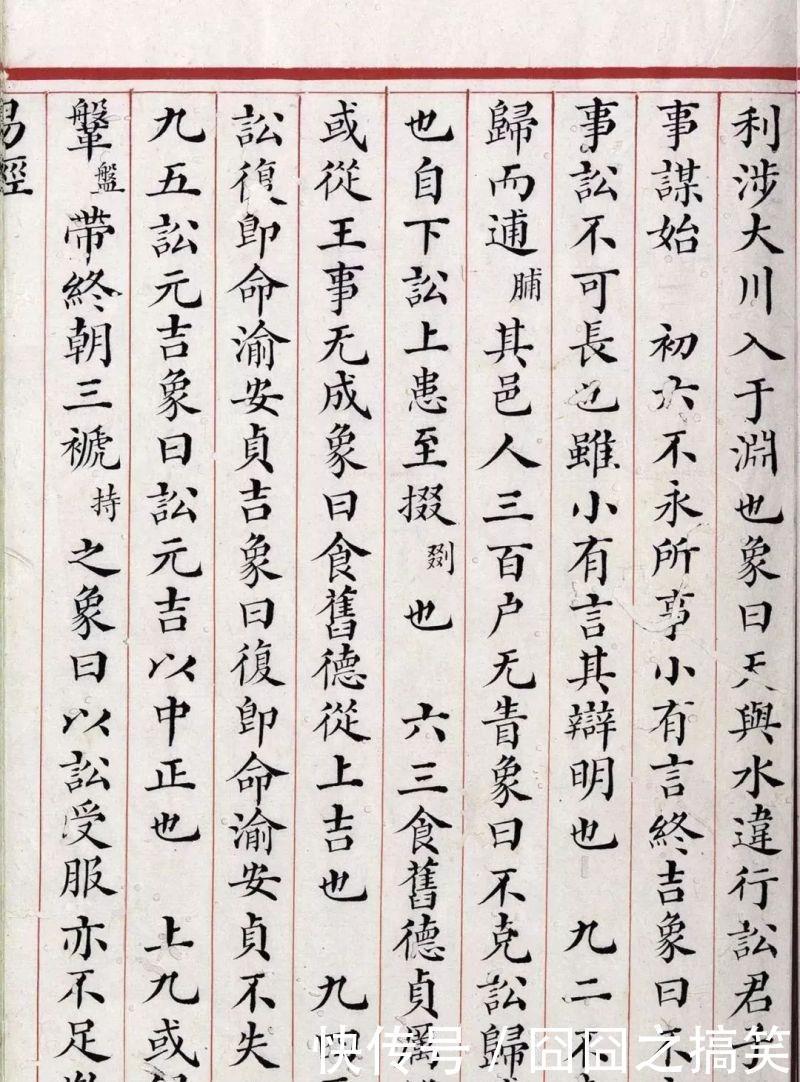 利涉大川入于淵也象曰天與水違行訟君子
事謀始　初六不永所事小有言終吉象曰不
事訟不可長也雖小有言其辯明也　九二不
歸而逋脯其邑人三百户无眚象曰不克訟歸
也自下訟上患至掇剟也　六三食舊德貞厲
或從王事无成象曰食舊德從上吉也　九四
訟復即命渝安貞吉象曰復即命渝安貞不失
九五訟元吉象曰訟元吉以中正也　上九或
鞶盤帶終朝三褫持之象曰以訟受服亦不足
易經
快传号/囧囧之搞笑